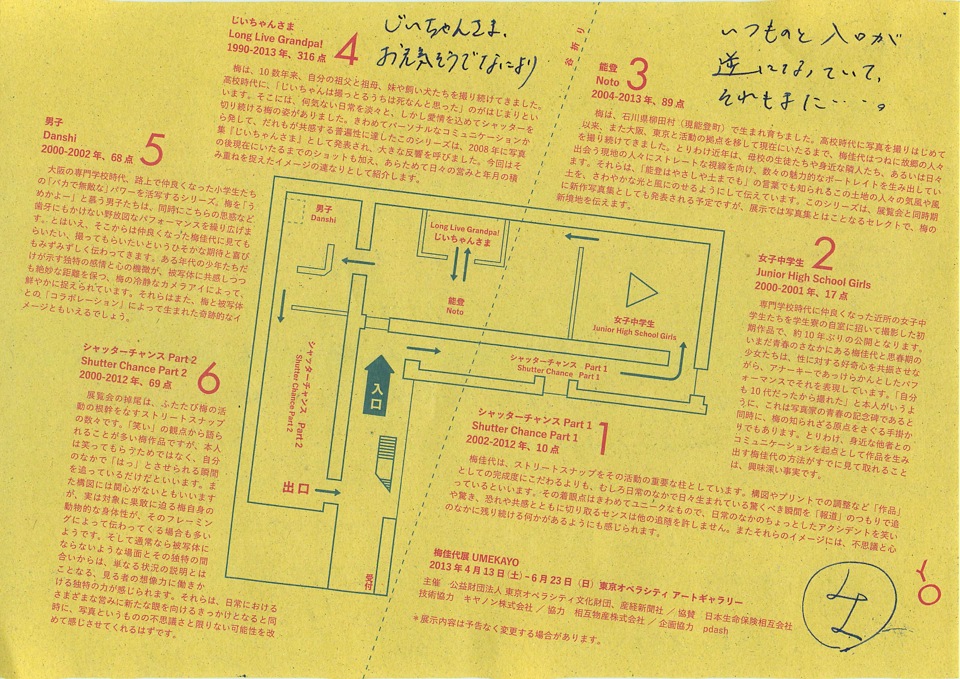 じいちゃんさま
Long Live Grandpa!
1990-2013年、316点
4
じいちゃんさま、
お元気そうでなにより
梅は、10数年来、自分の祖父と祖母、妹や飼い犬たちを撮り続けてきました。
高校時代に、「じいちゃんは撮っとるうちは死なんと思った」のがはじまりとい
います。そこには、何気ない日常を淡々と、しかし愛情を込めてシャッターを
切り続ける梅の姿がありました。きわめてパーソナルなコミュニケーションか
ら発して、だれもが共感する普遍性に達したこのシリーズは、2008年に写真
集『じいちゃんさま』として発表され、大きな反響を呼びました。今回はそ
の後現在にいたるまでのショットも加え、あらためて日々の営みと年月の積
み重ねを捉えたイメージの連なりとして紹介します。
谷折り
いつもと入口が
逆になっていて、
それもまた・・・。
能登
Noto
2004-2013年、89点
3
梅は、石川県柳田村(現能登町)で生まれ育ちました。高校時代に写真を撮りはじめて
以来、また大阪、東京と活動の拠点を移して現在にいたるまで、梅佳代はつねに故郷の人々
を撮り続けてきました。とりわけ近年は、母校の生徒たちや身近な隣人たち、あるいは日々
出会う現地の人々にストレートな視線を向け、数々の魅力的なポートレイトを生み出してい
ます。それらは、「能登はやさしや土までも」の言葉でも知られるこの土地の人々の気風や風
土を、さわやかな光と風にのせるようにして伝えています。このシリーズは、展覧会と同時期
に新作写真集としても発表される予定ですが、展示では写真集とはことなるセレクトで、梅の
新境地を伝えます。
男子
Danshi
2000-2002年、68点
5
大阪の専門学校時代、路上で仲良くなった小学生たち
の「バカで無敵な」パワーを活写するシリーズ。梅を「う
めかよー」と慕う男子たちは、同時にこちらの思惑など
歯牙にもかけない野放図なパフォーマンスを繰り広げま
す。とはいえ、そこからは仲良くなった梅佳代に見ても
らいたい、撮ってもらいたいというひそかな期待と喜び
もみずみずしく伝わってきます。ある年代の少年たちだ
けが示す独特の感情と心の機微が、被写体に共感しつつ
も絶妙な距離を保つ、梅の冷静なカメラアイによって、
鮮やかに捉えられています。それらはまた、梅と被写体
との「コラボレーション」によって生まれた奇跡的なイ
メージともいえるでしょう。
女子中学生
Junior High School Girls
2000-2001年、17点
2
専門学校時代に仲良くなった近所の女子中
学生たちを学生寮の自室に招いて撮影した初
期作品で、約10年ぶりの公開となります。
いまだ青春のさなかにある梅佳代と思春期の
少女たちは、性に対する好奇心を共振させな
がら、アナーキーであっけらかんとしたパフ
ォーマンスでそれを表現しています。「自分
も10代だったから撮れた」と本人がいうよ
うに、これは写真家の青春の記念碑であると
同時に、梅の知られざる原点をさぐる手掛か
りでもあります。とりわけ、身近な他者との
コミュニケーションを起点として作品を生み
出す梅佳代の方法がすでに見て取れること
は、興味深い事実です。
男子
Danshi
Long Live Grandpa!
じいちゃんさま
能登
Noto
女子中学生
Junior High School Girls
シャッターチャンス Part 1
Shutter Chance Part 1
シャッターチャンス Part 2
Shutter Chance Part 2
入口
出口
受付
シャッターチャンス Part 2
Shutter Chance Part 2
2000-2012年、69点
6
展覧会の掉尾は、ふたたび梅の活
動の根幹をなすストリートスナップ
の数々です。「笑い」の観点から語ら
れることが多い梅作品ですが、本人
は笑ってもらうためではなく、自分
のなかで「はっ」とさせられる瞬間
を追っているだけだといいます。ま
た構図には関心がないともいいます
が、実は対象に果敢に迫る梅自身の
動物的な身体性が、そのフレーミン
グによって伝わってくる場合も多い
ようです。そして通常なら被写体に
ならないような場面とその独特の間
合いからは、単なる状況の説明とは
ことなる、見る者の想像力に働きか
ける独特の力が感じられます。それらは、日常における
さまざまな営みに新たな眼を向けるきっかけとなると同
時に、写真というものの不思議さと限りない可能性を改
めて感じさせてくれるはずです。
シャッターチャンス Part 1
Shutter Chance Part 1
2002-2012年、10点
1
梅佳代は、ストリートスナップをその活動の重要な柱としています。構図やプリントでの調整など「作品」
としての完成度にこだわるよりも、むしろ日常のなかで日々生まれている驚くべき瞬間を「報道」のつもりで追
っているといいます。その着眼点はきわめてユニークなもので、日常のなかのちょっとしたアクシデントを笑い
や驚き、恐れや共感とともに切り取るセンスは他の追随を許しません。またそれらのイメージには、不思議と心
のなかに残り続ける何かがあるようにも感じられます。
梅佳代展 UMEKAYO
2013年4月13日(土)-6月23日(日) 東京オペラシティ アートギャラリー
主催 公益財団法人 東京オペラシティ文化財団、産経新聞社/協賛 日本生命保険相互会社
技術協力 キヤノン株式会社/協力 相互物産株式会社/企画協力 pdash
*展示内容は予告なく変更する場合があります。